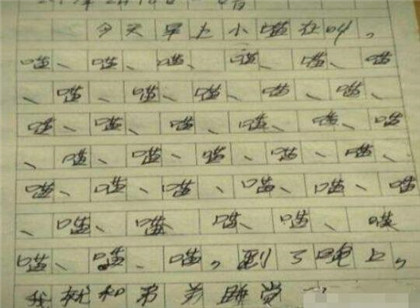 今天早上小喵在叫，
喵、喵、喵、喵、喵、喵
、喵、喵、喵、喵、喵
喵、喵、喵、喵、喵、喵
、喵、喵、喵、喵、喵、
喵、喵、喵、喵、喵、喵
、喵、喵、喵、喵、喵
喵、喵、喵。到了晚上，
我就和弟弟睡觉